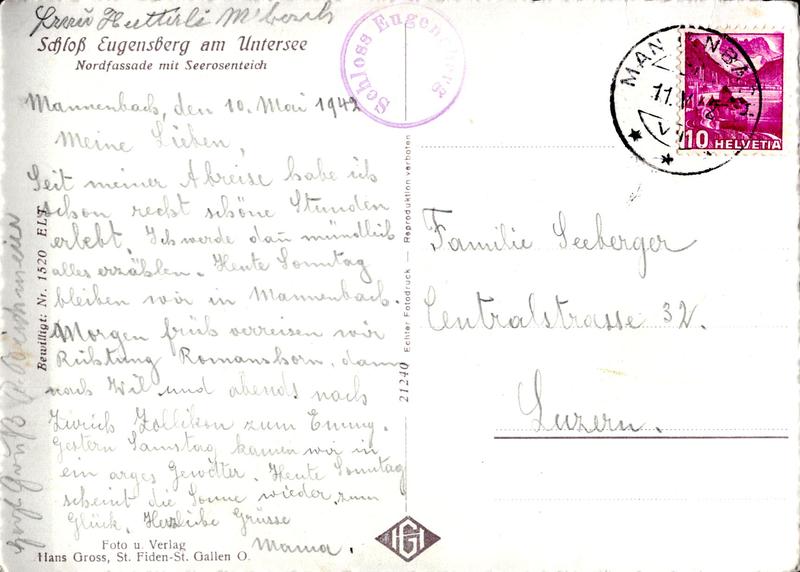 Frau Hutterli M'bach
Schloß Eugensberg am Untersee
Nordfassade mit Seerosenteich
Mannenbach, den 10. Mai 1942
Meine Lieben,
Seit meiner Abreise habe ich
schon recht schöne Stunden
erlebt. Ich werde dan̄ mündlich
alles erzählen. Heute Sonntag
bleiben wir in Mannenbach.
Morgen früh verreisen wir
Richtung Romanshorn, dann
nach Wil und abends nach
Zürich Zollikon zum Emmy.
Gestern Samstag kamen wir in
ein arges Gewitter. Heute Sonntag
scheint die Sonne wieder zum
Glück. Herzliche Grüsse
Mama.
Foto u. Verlag
Hans Gross, St. Fiden-St. Gallen O.
Bewilligt: Nr. 1520 ELT
Gruß
Schloss Eugensberg
21240 Echter Fotodruck — Reproduktion verboten
HG
MANNENBACH
11.V.42
10 HELVETIA
Familie Seeberger
Centralstrasse 32.
Luzern.